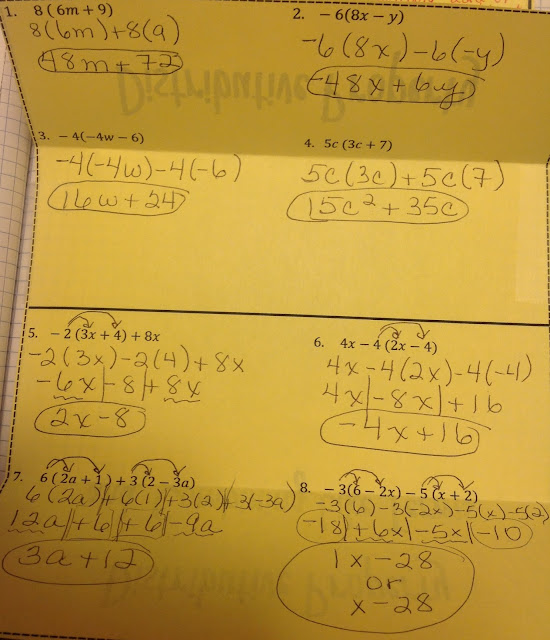 1. 8(6m + 9)
8(6m)+8(9)
48m + 72
2. – 6(8x – y)
-6(8x)-6(-y)
-48x + 6y
3. – 4(–4w – 6)
-4(-4w)-4(-6)
16w + 24
4. 5c (3c + 7)
5c(3c)+5c(7)
15c² + 35c
5. – 2 (3x + 4) + 8x
-2(3x)-2(4)+8x
-6x|-8|+8x
2x-8
6. 4x – 4 (2x – 4)
4x-4(2x)-4(-4)
4x|-8x|+16
-4x+16
7. 6 ( 2a + 1 ) + 3 ( 2 – 3a)
6(2a)+6(1)+3(2)+3(-3a)
12a|+6|+6|-9a
3a+12
8. – 3(6 – 2x) – 5 (x + 2)
-3(6)-3(-2x)-5(x)-5(2)
-18|+6x|-5x|-10
1x-28
or
x-28
Distributive Property
Distributive Property